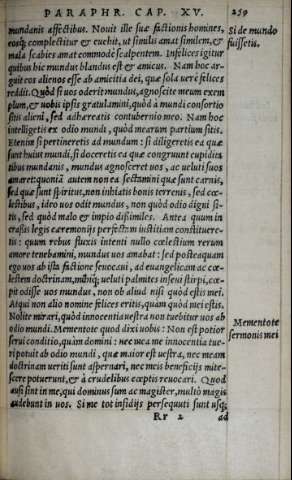 PARAPHR. CAP. XV. 259
mundanis affectibus. Nouit ille suæ factionis homines,
eosq; complectitur & euehit, ut similis amat similem, &
mala scabies amat commodè scalpentem. Infelices igitur
quibus hic mundus blandus est & amicus. Nam hoc ar-
guit eos alienos esse ab amicitia dei, quæ sola uerè felices
reddit. Quòd si uos oderit mundus, agnoscite meum exem
plum, & uobis ipsis gratulamini, quòd à mundi consortio
sitis alieni, sed adhæreatis contubernio meo. Nam hoc
intelligetis ex odio mundi, quòd mearum partium sitis.
Etenim si pertineretis ad mundum: si diligeretis ea quæ
sunt huius mundi, si doceretis ea quæ congruunt cupidita
tibus mundanis, mundus agnosceret uos, ac ueluti suos
amaret: quoniã autem non ea sectamini quæ sunt carnis,
sed quæ sunt spiritus, non inhiatis bonis terrenis, sed cœ-
lestibus, ideo uos odit mundus, non quòd odio digni si-
tis, sed quòd malo & impio dissimiles. Antea quum in
crassis legis ceremonijs perfectam iustitiam constituere-
tis: quum rebus fluxis intenti nullo cœlestium rerum
amore tenebamini, mundus uos amabat: sed posteaquam
ego uos ab ista factione seuocaui, ad euangelicam ac cœ-
lestem doctrinam, mihiq; ueluti palmites inseui stirpi, cœ-
pit odisse uos mundus, non ob aliud nisi quòd estis mei.
Atqui non alio nomine felices eritis, quàm quòd mei estis.
Nolite mirari, quòd innocentia uestra non tuebitur uos ab
odio mundi. Mementote quod dixi uobis: Non est potior
serui conditio, quàm domini: nec mea me innocentia tue-
ri potuit ab odio mundi, quæ maior est uestra, nec meam
doctrinam ueriti sunt aspernari, nec meis beneficijs mite-
scere potuerunt, & à crudelibus cœptis reuocari. Quod
ausi sint in me, qui dominus sum ac magister, multò magis
audebunt in uos. Si me tot insidijs persequuti sunt usq;
Rr 2 ad
Si de mundo
fuissetis.
Mementote
sermonis mei